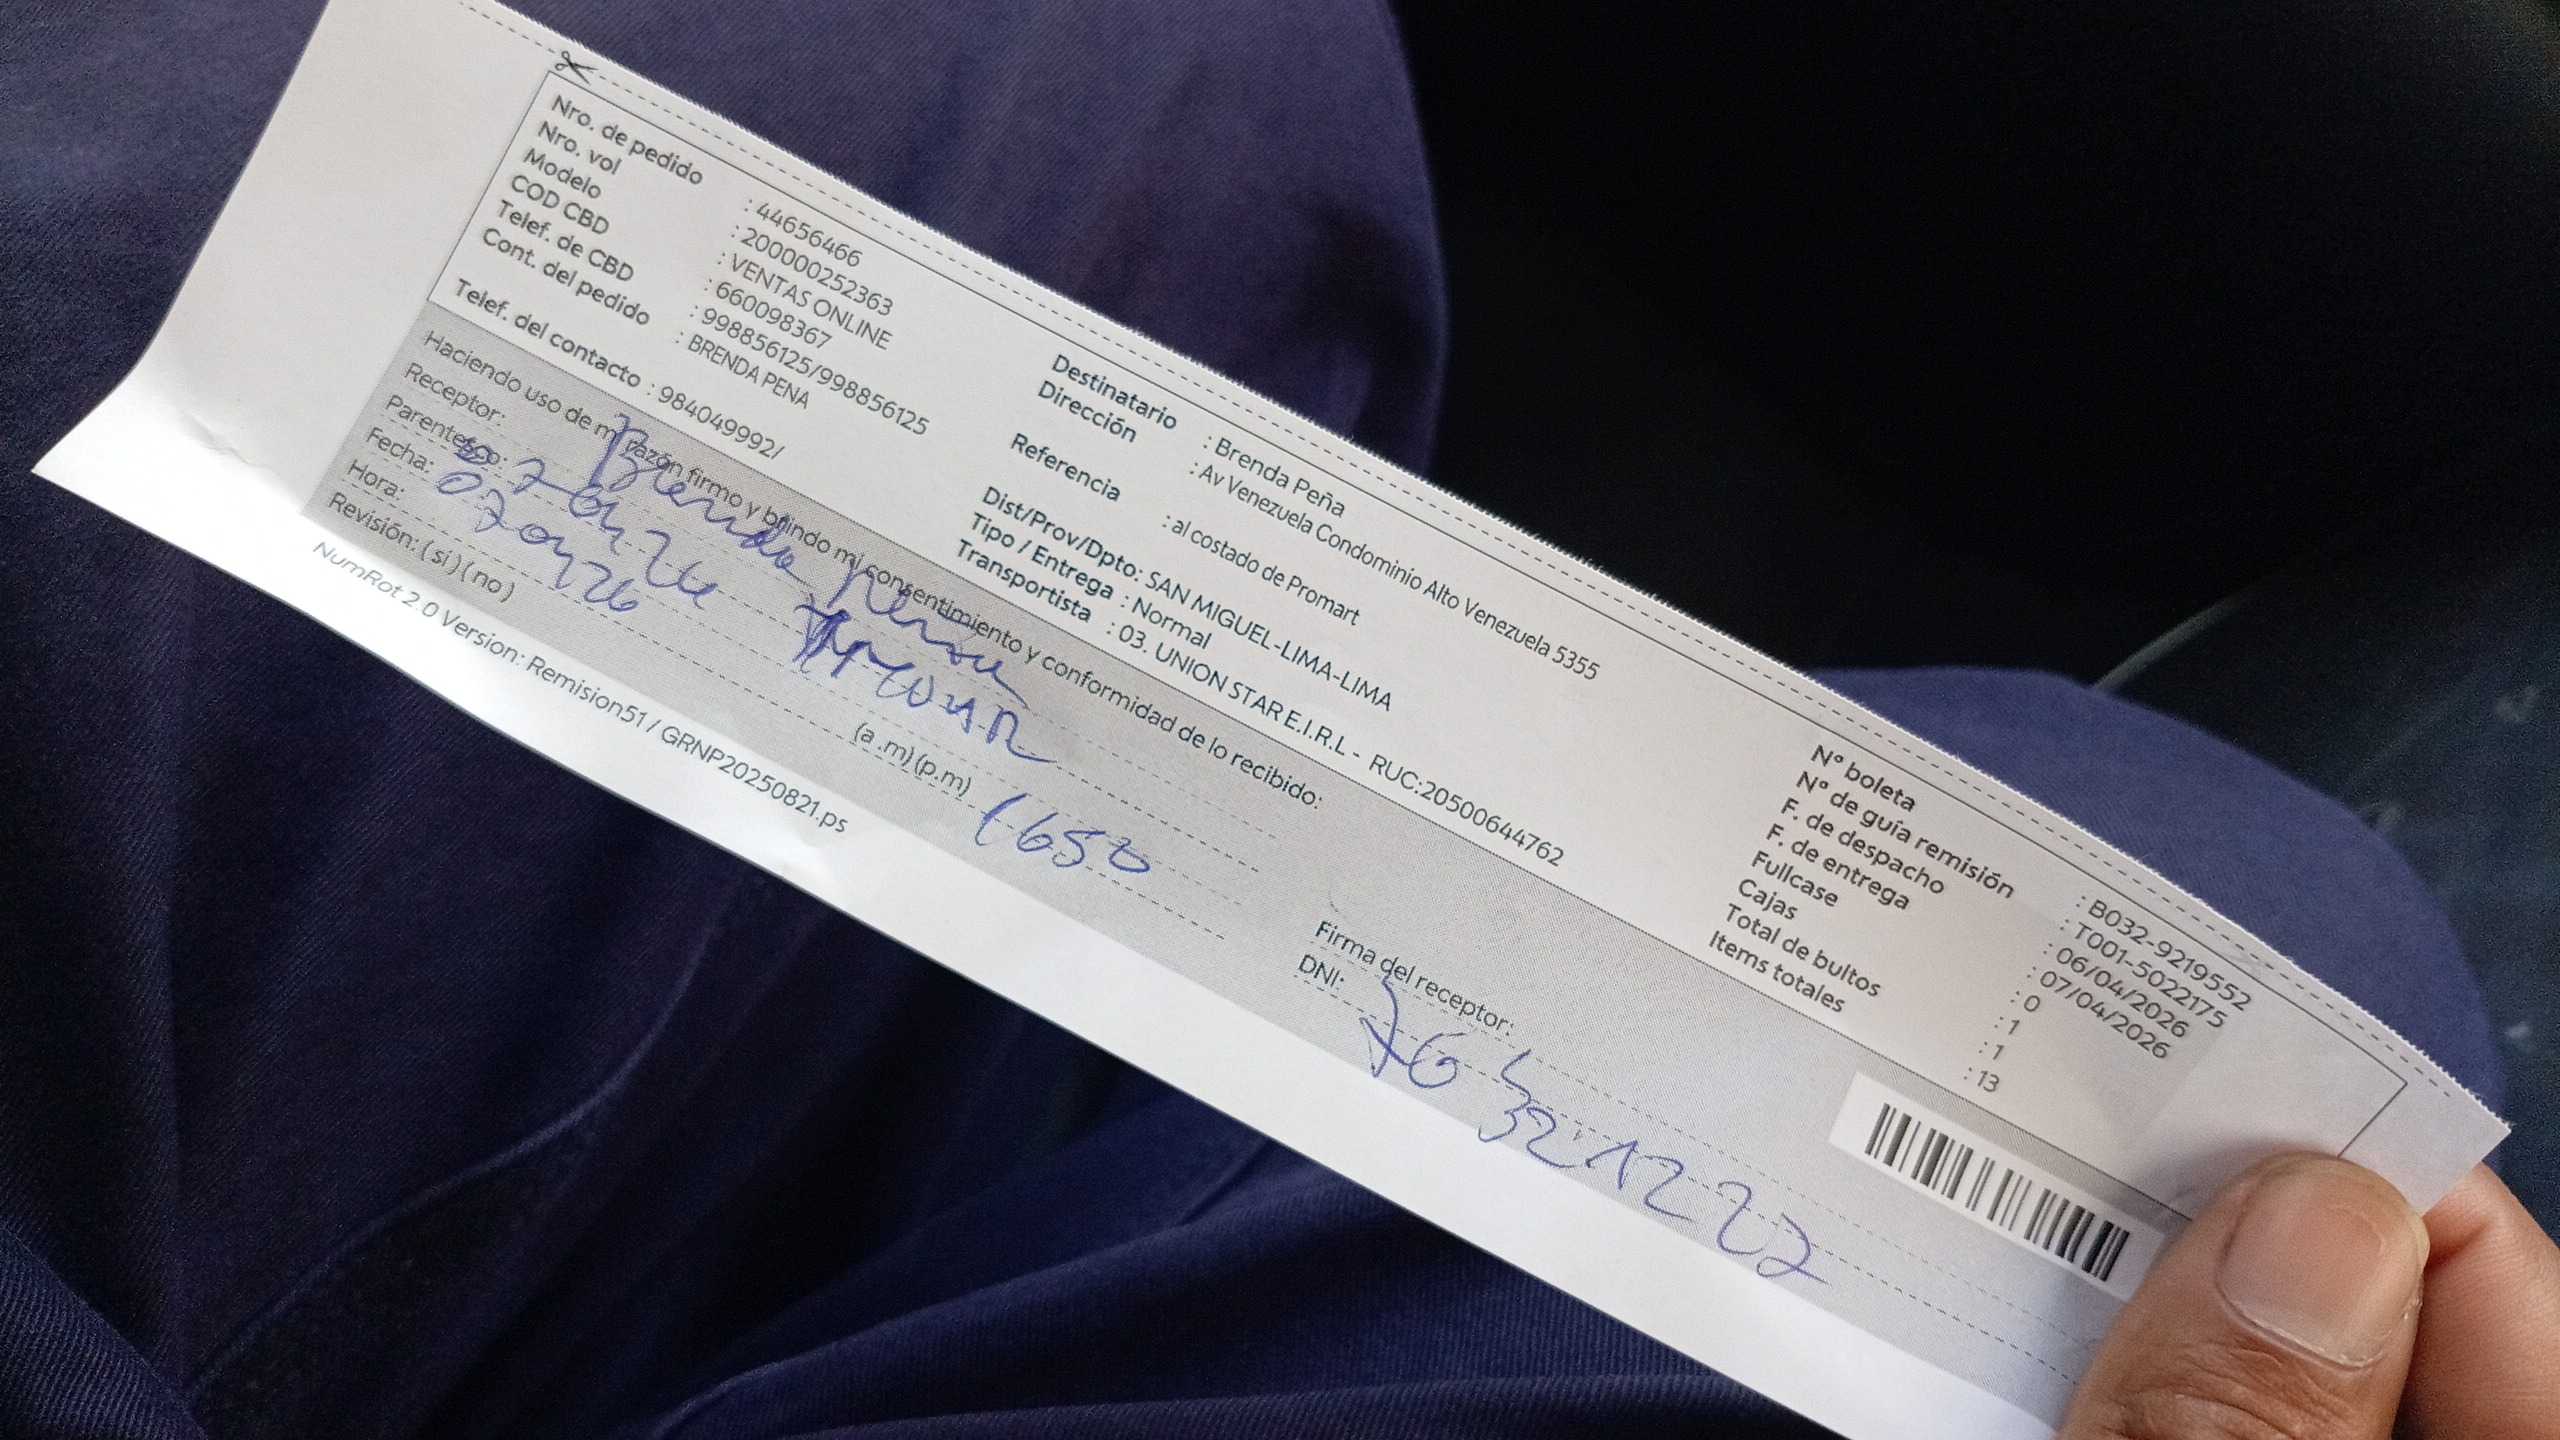 Nro. de pedido : 44656466
Nro. vol : 200000252363
Modelo : VENTAS ONLINE
COD CBD : 660098367
Telef. de CBD : 998856125/998856125
Cont. del pedido : BRENDA PENA
Telef. del contacto : 984049992/
Destinatario : Brenda Peña
Dirección : Av Venezuela Condominio Alto Venezuela 5355
Referencia : al costado de Promart
Dist/Prov/Dpto: SAN MIGUEL-LIMA-LIMA
Tipo / Entrega : Normal
Transportista : 03. UNION STAR E.I.R.L - RUC:20500644762
N° boleta : B032-9219552
N° de guía remisión : T001-5022175
F. de despacho : 06/04/2026
F. de entrega : 07/04/2026
Fullcase : 0
Cajas : 1
Total de bultos : 1
Items totales : 13
Haciendo uso de mi razón firmo y brindo mi consentimiento y conformidad de lo recibido:
Receptor: Brenda Pena
Parentesco:
Fecha: 07 04 26
Hora: (a .m) (p.m) 1650
Revisión: ( si ) ( no )
Firma del receptor:
DNI:
NumRot 2.0 Version: Remision51 / GRNP20250821.ps